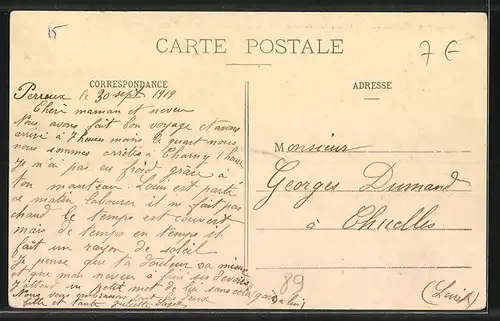 15
CARTE POSTALE
7€
CORRESPONDANCE
ADRESSE
Perreux le 30 sept 1919
Cheri maman et neveu
Nous avons fait bon voyage et avons
arrivé à 7 heures moins le quart nous
nous sommes arrêtés à Charny 1 heure
Je n'ai pas eu froid grâce à
ton manteau. Louis est parti
ce matin labourer il ne fait pas
chaud le temps est couvert
mais de temps en temps il
fait un rayon de soleil
Je pense que ta douleur va mieux
et que mon neveu a fini ses devoirs
J'attend un petit mot de lui sans
Nous vous embrassons
fille et tante Juliette
Monsieur
Georges Dumand
à Chuelles
(Loiret)
89